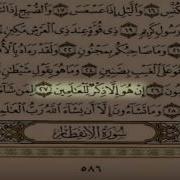 وَٱلَّيْلِ إِذَا عَسْعَسَ ١٧ وَٱلصُّبْحِ إِذَا
رَسُولٍ كَرِيمٍ ١٩ ذِى قُوَّةٍ عِندَ ذِى ٱلْعَرْشِ مَكِينٍ
وَمَا صَاحِبُكُم بِمَجْنُونٍ ٢٢ وَلَقَدْ رَءَاهُ
عَلَى ٱلْغَيْبِ بِضَنِينٍ ٢٤ وَمَا هُوَ بِقَوْلِ شَيْطَٰنٍ
٢٦ إِنْ هُوَ إِلَّا ذِكْرٌ لِّلْعَٰلَمِينَ ٢٧ لِمَن شَآءَ
وَمَا تَشَآءُونَ إِلَّآ أَن يَشَآءَ ٱللَّهُ رَبُّ ٱلْعَٰلَمِينَ
سُورَةُ ٱلِانفِطَارِ
٥٨٦